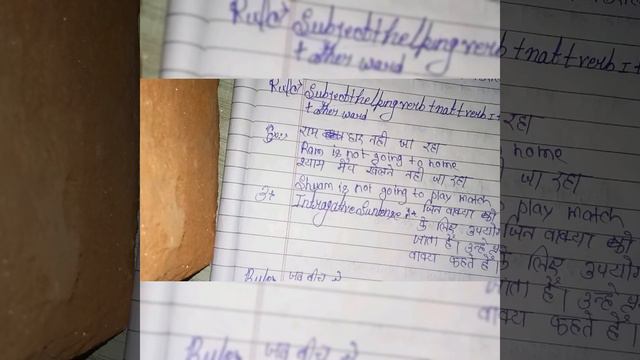 Rule:- Subject+helping verb+not+verb I+
+ other word
Ex:- राम घर नही जा रहा
Ram is not going to home
श्याम मैच खेलने नही जा रहा
Shyam is not going to play match
3+ Intragative Suntense :- जिन वाक्या को
के लिए उपयोग
जाता है। उन्हे
वाक्य कहते है
Rule:- जब बीच मे